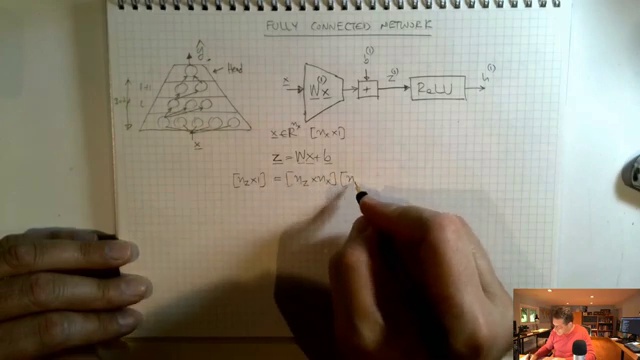 FULLY CONNECTED NETWORK
ŷ
Head
l+1
l
x
x
W x
(1)
b
(1)
+
z
(1)
ReLU
h
(1)
x ∈ R^{n_x} [n_x × 1]
z = Wx + b
[n_z × 1] = [n_z × n_x] [n